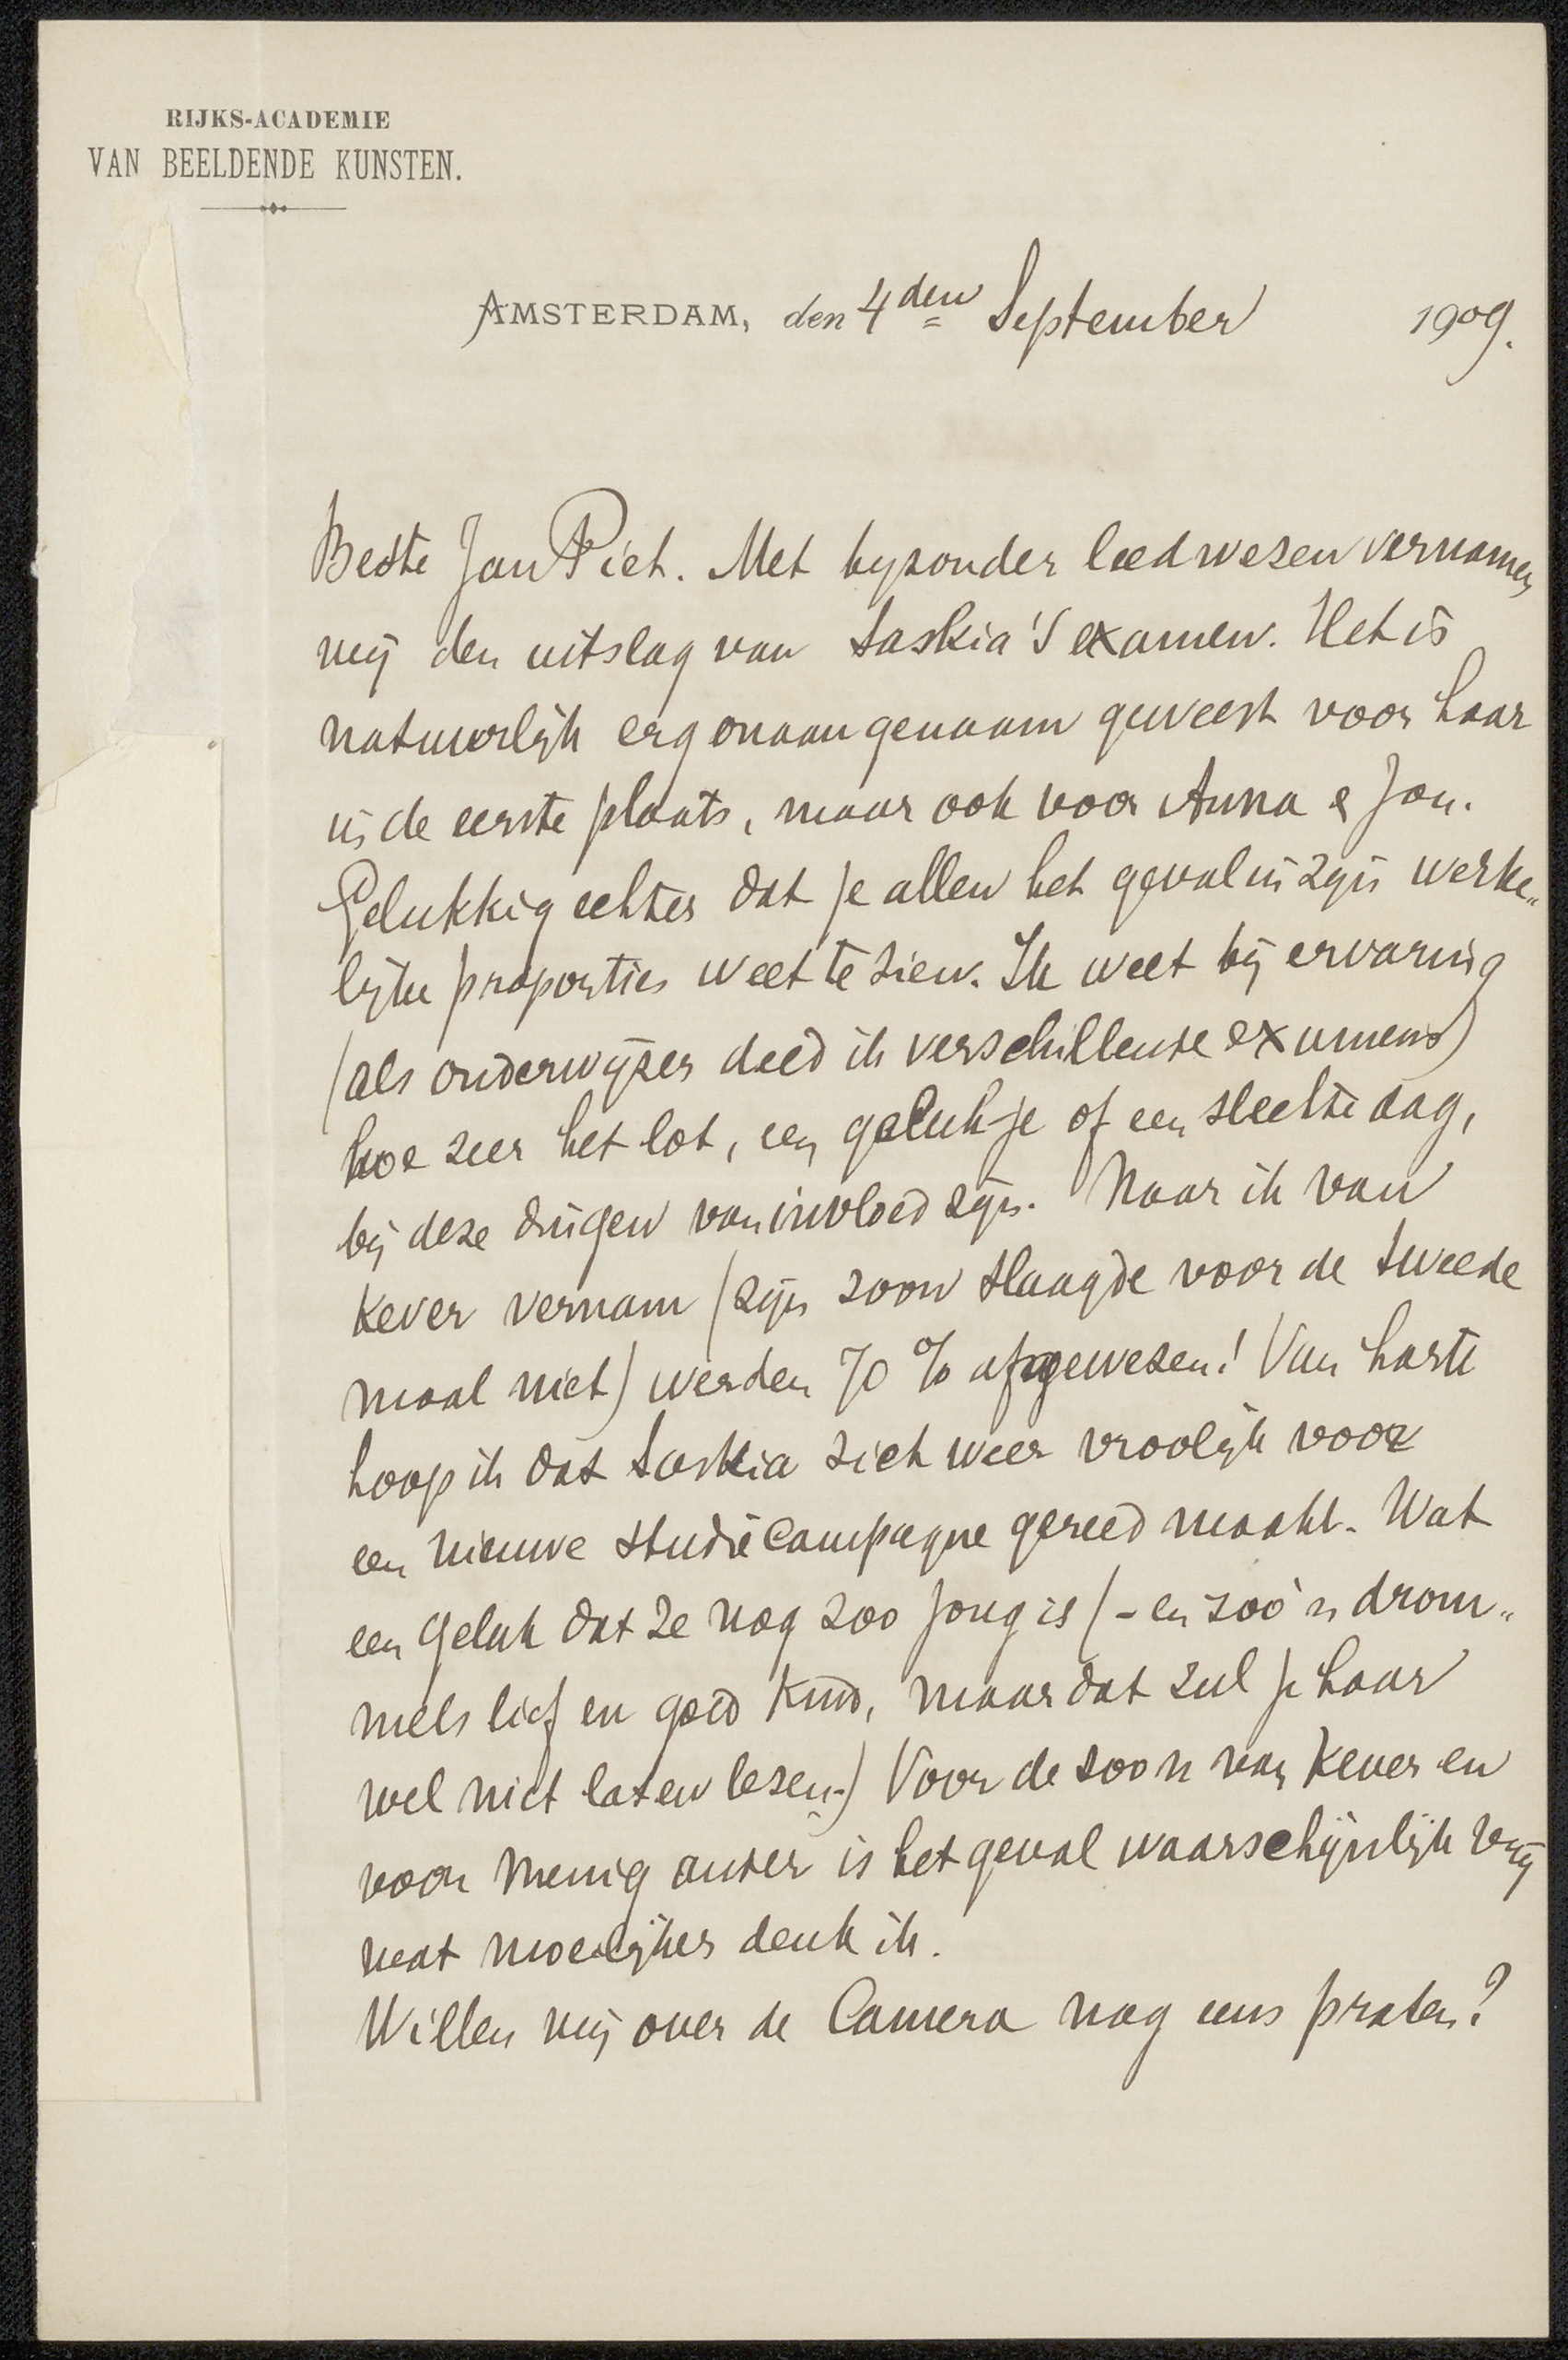 RIJKS-ACADEMIE
VAN BEELDENDE KUNSTEN.
AMSTERDAM, den 4den September 1909.
Beste Jan Piet. Met byzonder leedwezen vernamen
wij den uitslag van Saskia's examen. Het is
natuurlijk erg onaangenaam geweest voor haar
in de eerste plaats, maar ook voor Anna & Jou.
Gelukkig echter dat je allen het geval in zijn werke„
lijke proporties weet te zien. Ik weet bij ervaring
(als onderwijzer deed ik verschillende examens)
hoe zeer het lot, een gelukje of een slechte dag,
bij deze dingen van invloed zijn. Naar ik van
Kever vernam (zijn zoon slaagde voor de tweede
maal niet) werden 70 % afgewezen! Van harte
hoop ik dat Saskia zich weer vroolijk voor
een nieuwe studie Campagne gereed maakt. Wat
een geluk dat ze nog zoo jong is (- en zoo'n drom„
mels lief en goed kind, maar dat zul je haar
wel niet laten lezen.) Voor de zoon van Kever en
voor menig ander is het geval waarschijnlijk vrij
wat moeilijker denk ik.
Willen wij over de Camera nog eens praten?